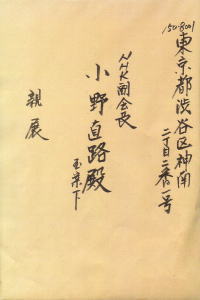 150-8001
東京都渋谷区神南
二丁目二番一号
NHK副会長
小野直路殿
玉案下
親展